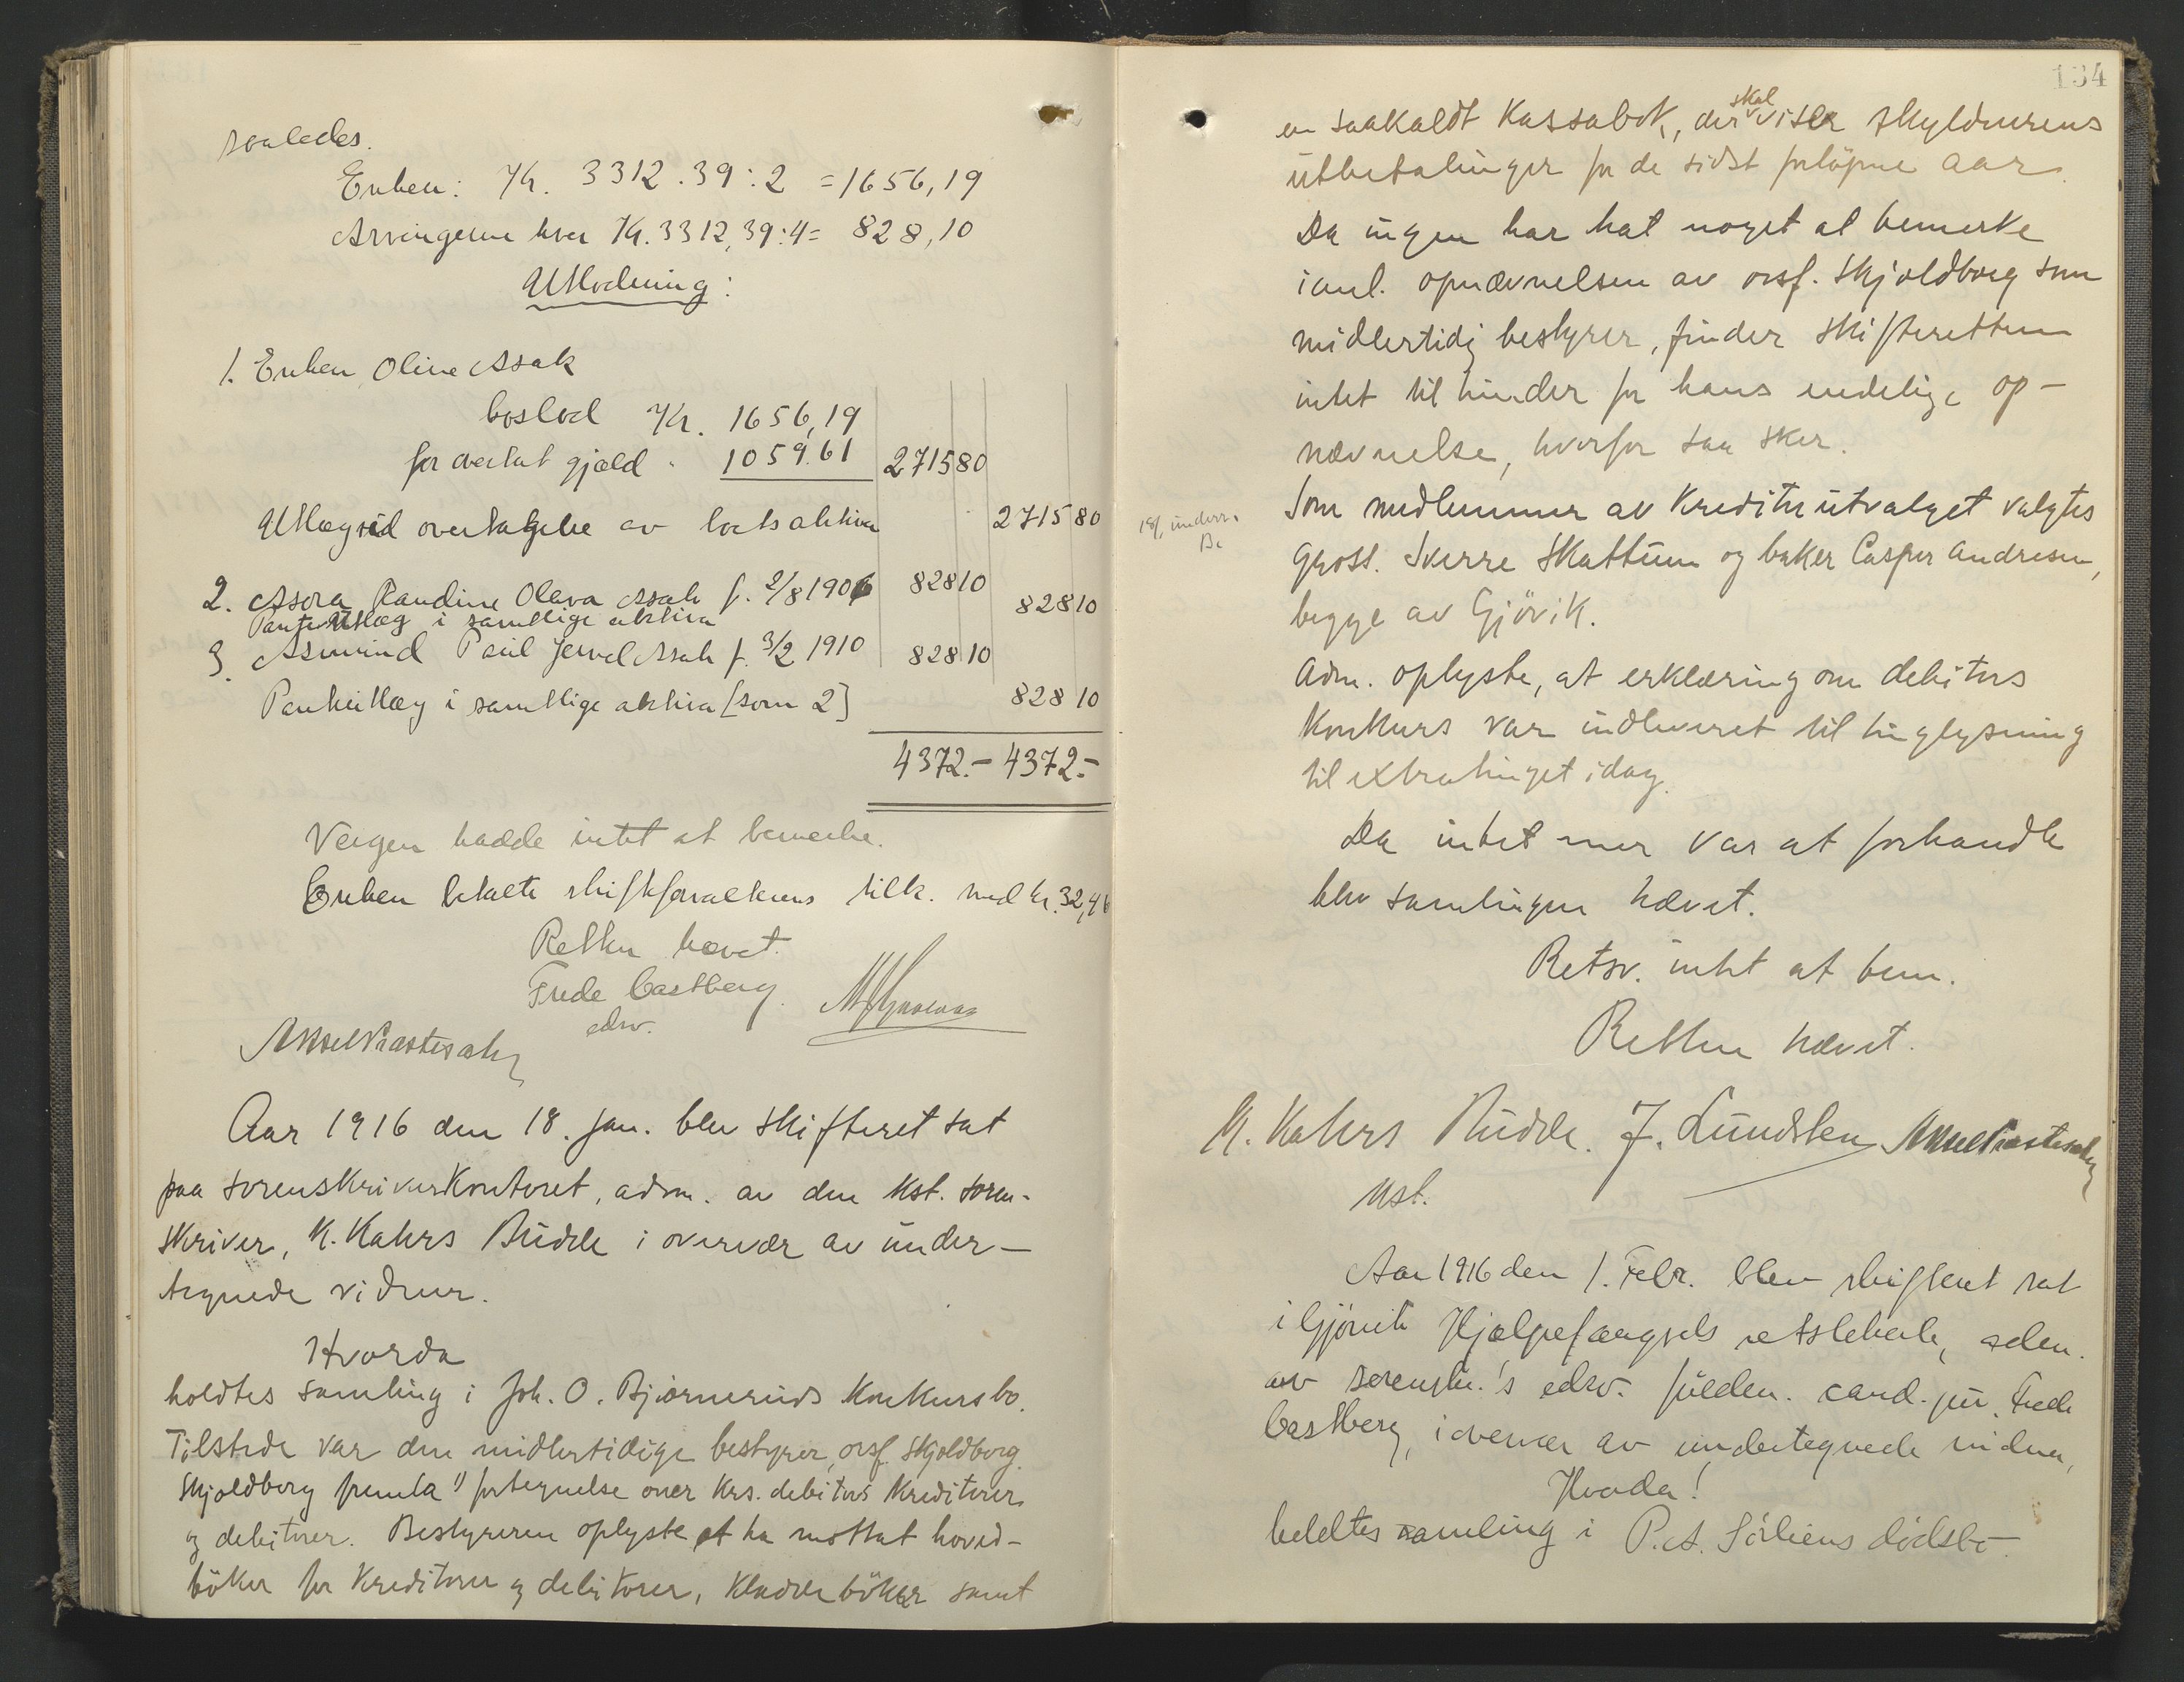 saaledes.
Enken: Kr. 3312.39:2 = 1656,19
Arvingerne hver Kr. 3312,39:4 = 828,10
Utlodning:
1. Enken Oline Assak
boslod Kr. 1656,19
for overtat gjæld " 1059.61 2715 80
Utlæg ved overtagelse av boets aktiva 2715 80
2. Asora Randine Olava Assak f. 2/8 1906 828 10
Panteutlæg i samtlige aktiva 828 10
3. Asmund Paul Jervel Assak f. 3/2 1910 828 10
Panteutlæg i samtlige aktiva [som 2] 828 10
4372.- 4372.-
Vergen hadde intet at bemerke.
Enken betalte skifteforvalterens tilk. med kr. 32,46
Retten hævet.
Frede Castberg
edsv.
Aar 1916 den 18. jan. blev skifteret sat
paa sorenskriverkontoret, adm. av den kst. soren-
skriver, K. Kahrs Budde i overvær av under-
tegnede vidner.
Hvorda
holdtes samling i Joh. O. Bjørneruds konkursbo.
Tilstede var den midlertidige bestyrer, orsf. Skjoldborg.
Skjoldborg fremla 1) fortegnelse over krs. debitors kreditorer
og debitorer. Bestyreren oplyste at ha mottat hoved-
bøker for kreditorer og debitorer, kladdebøker samt
134
en saakaldt kassabok, der skal vise skyldnerens
utbetalinger for de sidst forløpne aar.
Da ingen har hat noget at bemerke
ianl. opnævnelsen av orsf. Skjoldborg som
midlertidig bestyrer, finder skifteretten
intet til hinder for hans endelige op-
nævnelse, hvorfor saa sker.
Som medlemmer av kreditorutvalget valgtes
gross. Sverre Skattum og baker Casper Andresen,
begge av Gjøvik.
18/1 underr.
Adm. oplyste, at erklæring om debitors
konkurs var indleveret til tinglysning
til extratinget idag.
Da intet mer var at forhandle
blev samlingen hævet.
Retsv. intet at bem.
Retten hævet.
K. Kahrs Budde. J. Lundsten
kst.
Aar 1916 den 1. Febr. blev skifteret sat
i Gjøvik Hjælpefængsels retslokale, adm.
av sorenskr.'s edsv. fuldm. cand. jur. Frede
Castberg, i overvær av undertegnede vidner,
Hvorda!
holdtes samling i P. A. Sörliens dödsbo.